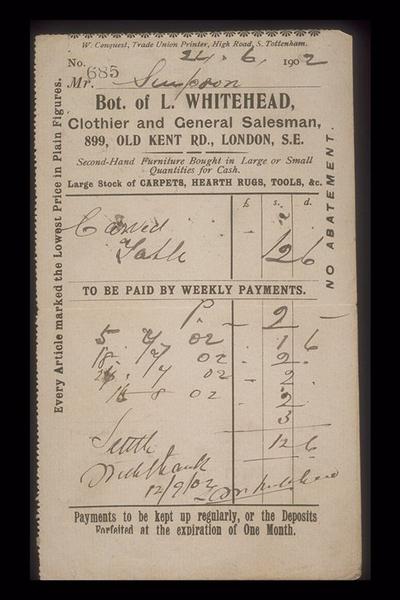 W. Conquest, Trade Union Printer, High Road, S. Tottenham.
No. 685
21. 6. 1902
Mr. Simpson
Bot. of L. WHITEHEAD,
Clothier and General Salesman,
899, OLD KENT RD., LONDON, S.E.
Second-Hand Furniture Bought in Large or Small
Quantities for Cash.
Large Stock of CARPETS, HEARTH RUGS, TOOLS, &c.
£ s. d.
Carved
Table 12 6
TO BE PAID BY WEEKLY PAYMENTS.
P. – 2 –
5 7 02 1 6
18 7 02 2
7 02 – 2
16 8 02 2
3
Settle 12 6
With thanks
12/9/02
Payments to be kept up regularly, or the Deposits
Forfeited at the expiration of One Month.
Every Article marked the Lowest Price in Plain Figures.
NO ABATEMENT.